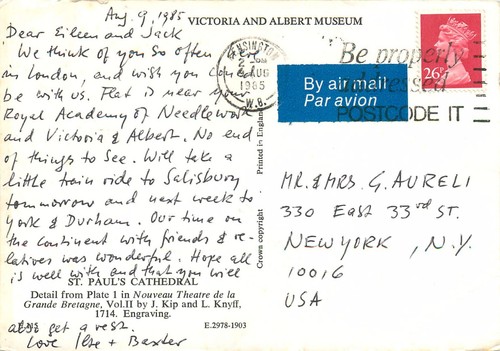 Aug. 9, 1985
VICTORIA AND ALBERT MUSEUM
Dear Eileen and Jack
We think of you so often here
in London, and wish you could
be with us. Flat is near your
Royal Academy of Needlework
and Victoria & Albert. No end
of things to see. Will take a
little train ride to Salisbury
tommorrow and next week to
York & Durham. Our time on
the continent with friends & re-
latives was wonderful. Hope all
is well with and that you will
ST. PAUL'S CATHEDRAL
Detail from Plate 1 in Nouveau Theatre de la
Grande Bretagne, Vol.II by J. Kip and L. Knyff,
1714. Engraving.
also get a rest.
E.2978-1903
Love Ilse + Baxter
Printed in England
Crown copyright
KENSINGTON
AUG
1985
W.8.
Be properly
addressed
POSTCODE IT
26P
By air mail
Par avion
MR. & MRS. G. AURELI
330 East 33rd ST.
NEW YORK, N.Y.
10016
USA